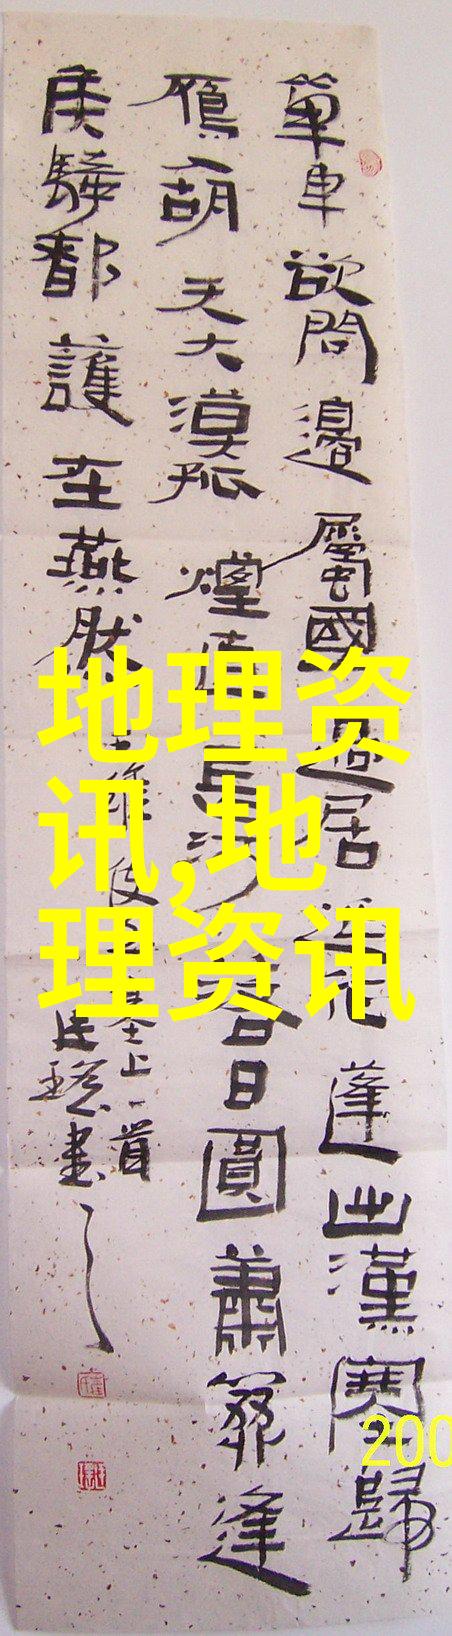 單車欲問邊屬國過居延征蓬出漢塞歸
鴈入胡天大漠孤煙直長河落日圓蕭關逢
侯騎都護在燕然
王維使至塞上一首
書
地理资
讯,地
理资讯
200